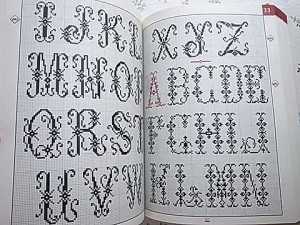 I J K L
M N O P
Q R S T
U V W
33
X Y Z
A B C D E
F G H I J
K L M N